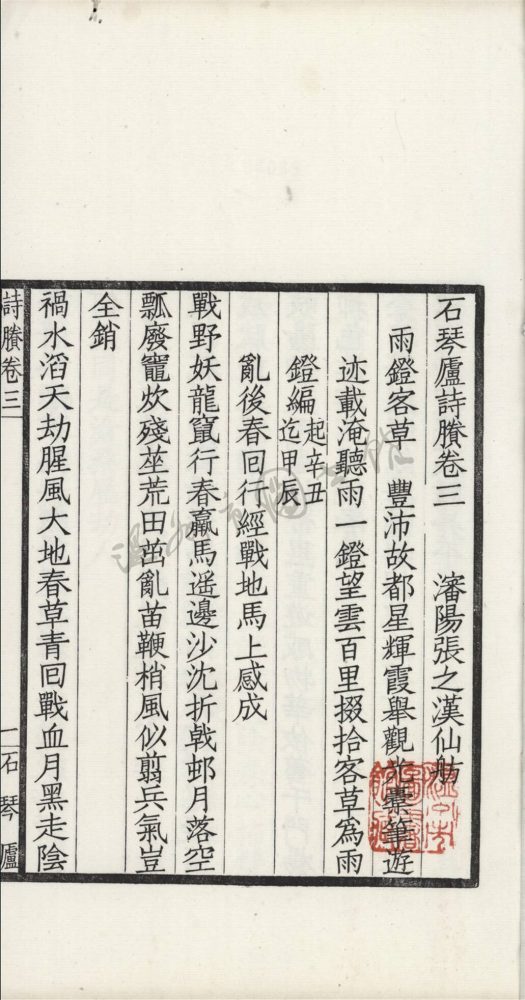 石琴廬詩賸卷三　瀋陽張之漢仙舫
雨鐙客草　豐沛故都星輝霞舉觀光橐筆遊
迹載淹聽雨一鐙望雲百里掇拾客草爲雨
鐙編起辛丑迄甲辰
亂後春囘行經戰地馬上感成
戰野妖龍竄行春羸馬遥邊沙沈折戟邨月落空
瓢廢竈炊殘莝荒田茁亂苗鞭梢風似翦兵氣豈
全銷
禍水滔天劫腥風大地春草青囘戰血月黑走陰
詩賸卷三　一　石琴廬